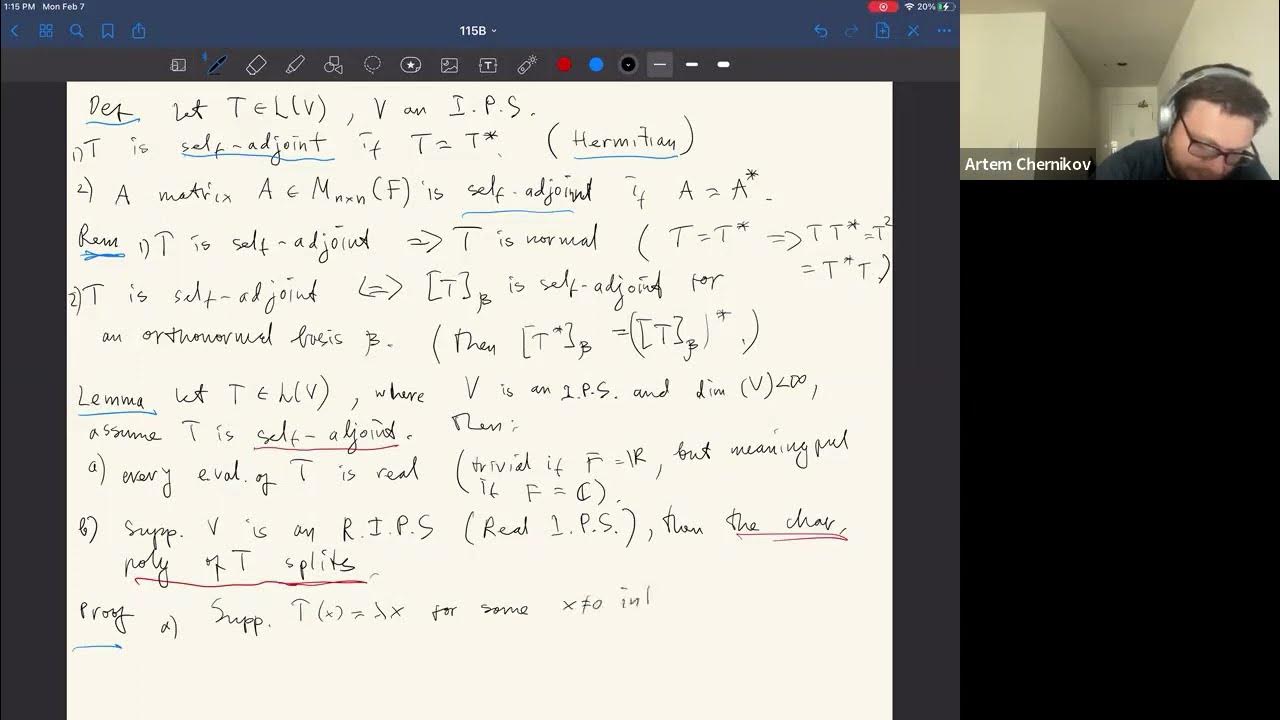 1:15 PM Mon Feb 7
20%
115B
Artem Chernikov
Def Let T ∈ L(V), V an I.P.S.
1) T is self-adjoint if T = T*. (Hermitian)
2) A matrix A ∈ Mn×n(F) is self-adjoint if A = A*.
Rem 1) T is self-adjoint => T is normal (T = T* => TT* = T²
= T*T)
2) T is self-adjoint <=> [T]β is self-adjoint for
an orthonormal basis β. (then [T*]β = ([T]β)*.)
Lemma Let T ∈ L(V), where V is an I.P.S. and dim(V)<∞,
assume T is self-adjoint. Then:
a) every eval. of T is real (trivial if F = ℝ, but meaningful
if F = ℂ).
b) Supp. V is an R.I.P.S (Real I.P.S.), then the char.
poly of T splits.
Proof a) Supp. T(x) = λx for some x≠0 in